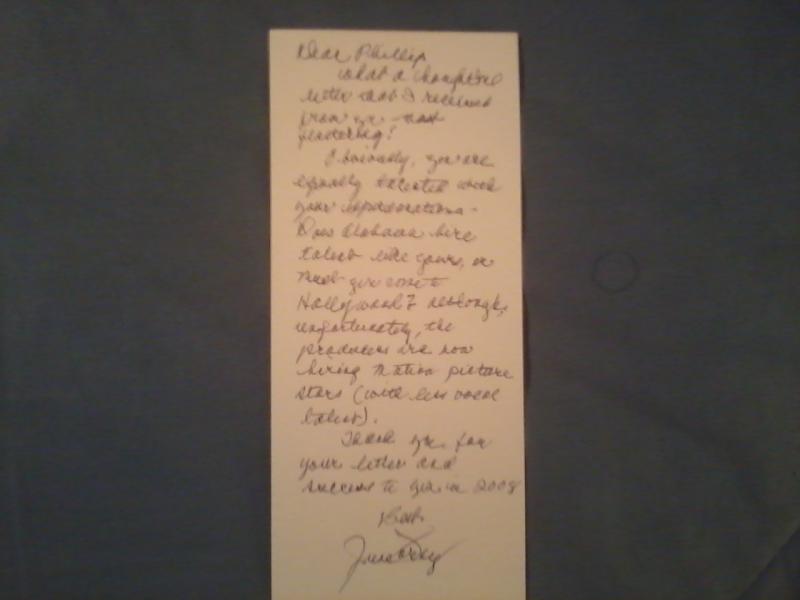 Dear Phillip
What a thoughtful
letter that I received
from you - most
flattering!
Obviously, you are
equally talented with
your impersonations -
Does Alabama hire
talent like yours, or
must you come to
Hollywood? Although,
unfortunately, the
producers are now
hiring motion picture
stars (with less vocal
talent).
Thank you for
your letter and
success to you in 2008
Best
June Foray